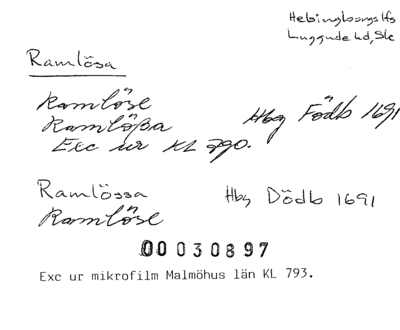 Helsingborgs lfs
Luggude hd, Sk
Ramlösa
Ramlöse
Ramlößa
Hbg Födb 1691
Exc ur KL 790.
Ramlössa
Hbg Dödb 1691
Ramlöse
00 030897
Exc ur mikrofilm Malmöhus län KL 793.